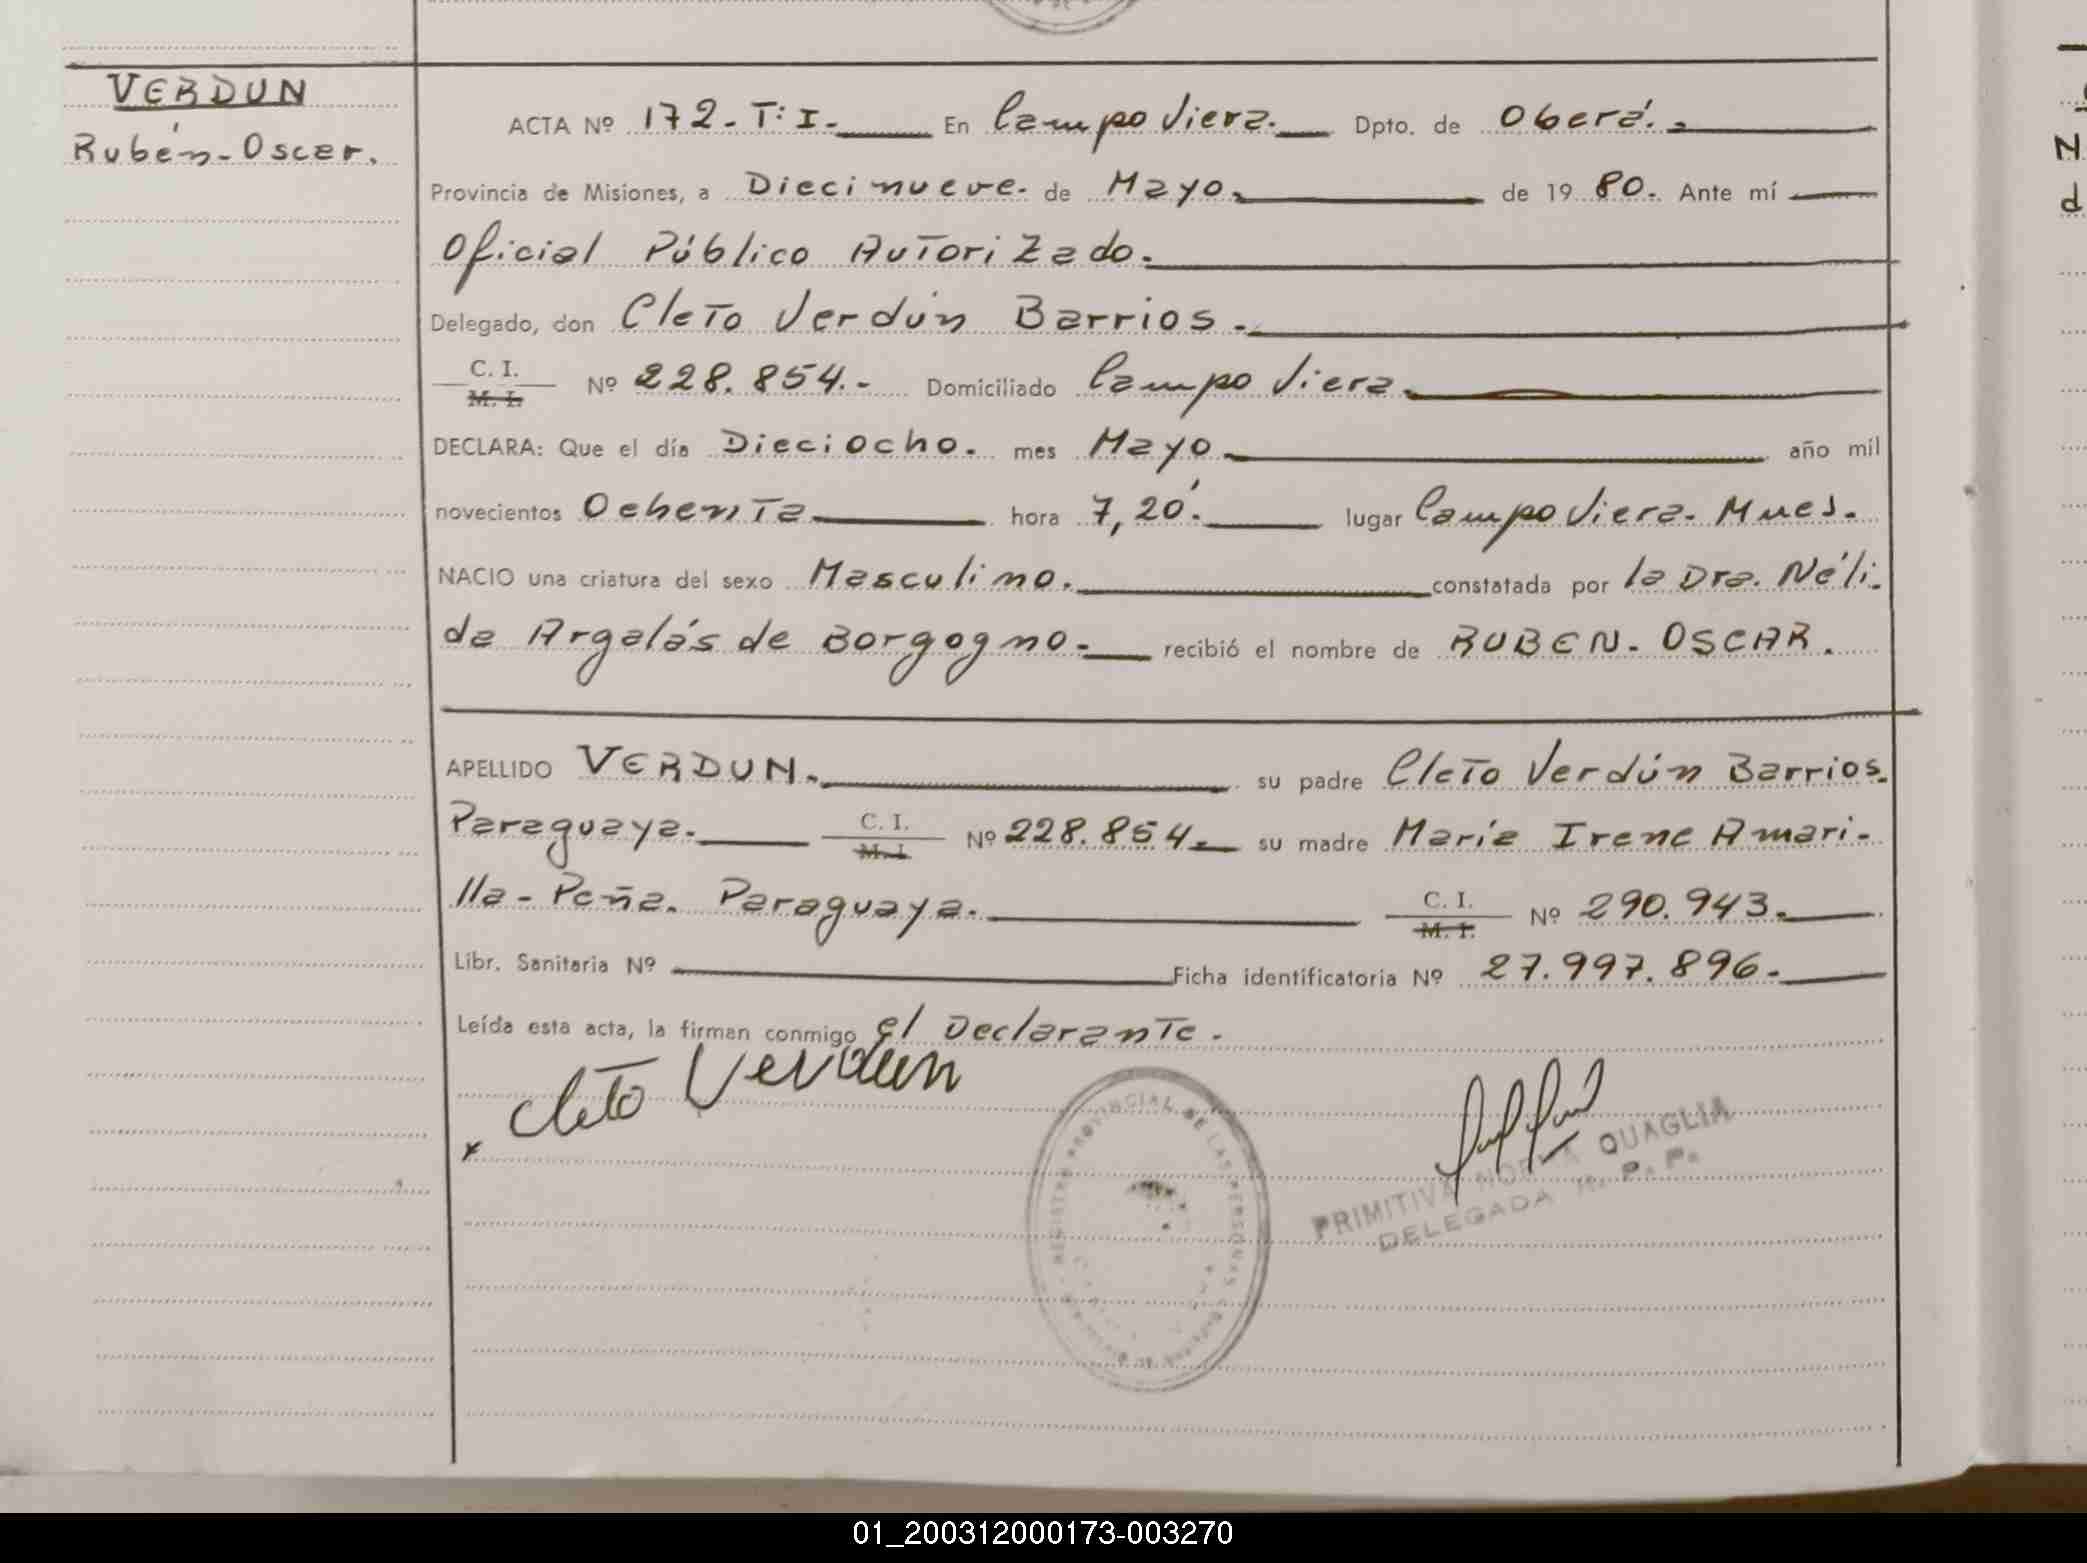 VERDUN
Rubén-Oscar.
ACTA Nº 172-T:I.- En Campo Viera. Dpto. de Oberá.
Provincia de Misiones, a Diecinueve. de Mayo. de 1980. Ante mí
Oficial Público Autorizado.
Delegado, don Cleto Verdún Barrios.
C. I.
M. I.
Nº 228.854.- Domiciliado Campo Viera.
DECLARA: Que el día Dieciocho. mes Mayo año mil
novecientos Ochenta hora 7,20'. lugar Campo Viera. Mnes.
NACIO una criatura del sexo Masculino. constatada por la Dra. Néli-
da Argalás de Borgogno. recibió el nombre de RUBEN-OSCAR.
APELLIDO VERDUN. su padre Cleto Verdún Barrios.
Paraguaya. C. I. M. I. Nº 228.854. su madre María Irene Amari-
lla-Peña. Paraguaya. C. I. M. I. Nº 290.943.
Libr. Sanitaria Nº Ficha identificatoria Nº 27.997.896.
Leída esta acta, la firman conmigo el Declarante.
Cleto Verdun
REGISTRO PROVINCIAL DE LAS PERSONAS
PRIMITIVA NORMA QUAGLIA
DELEGADA R. P. P.
01_200312000173-003270